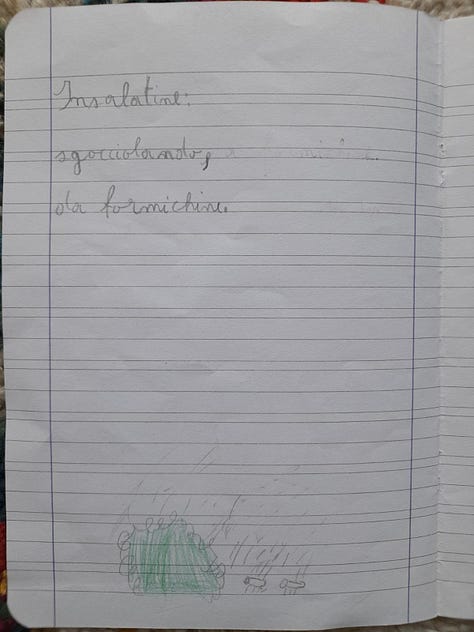 Insalatine:
sgocciolando,
da formichine.